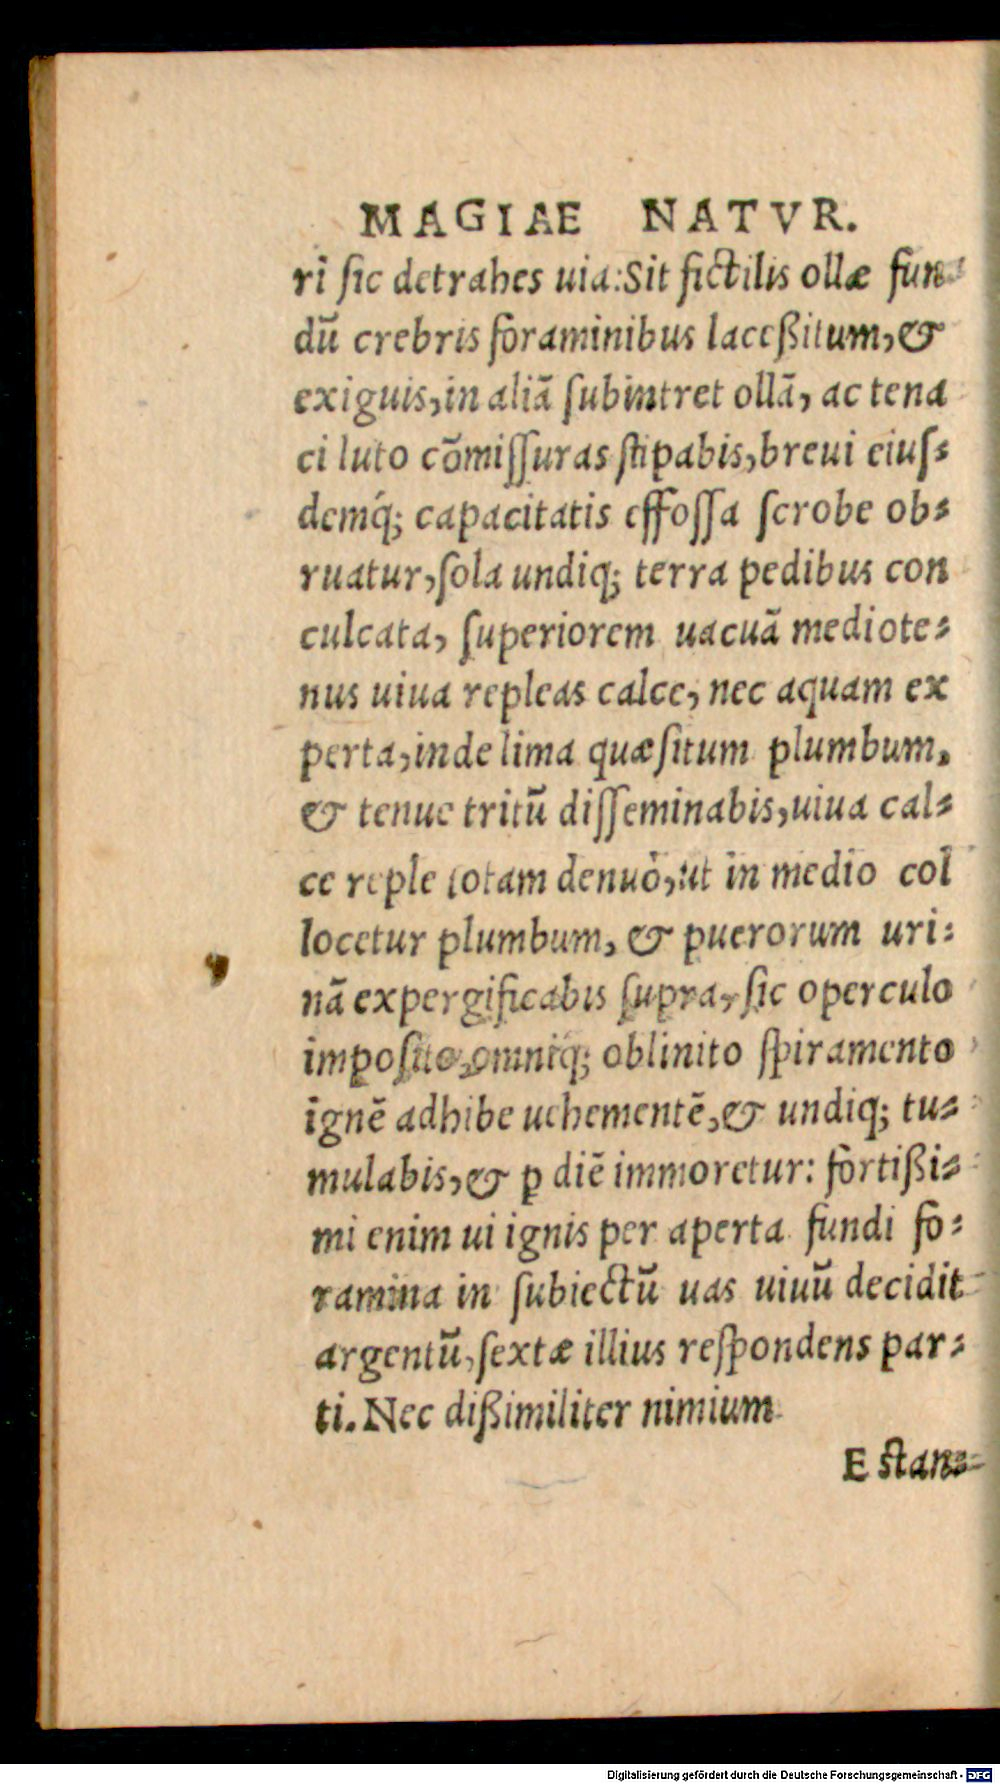 MAGIAE NATVR.
ri ſic detrahes uia:Sit fictilis ollæ fun⸗
dū crebris foraminibus laceßitum, &
exiguis, in aliā ſubintret ollā, ac tena
ci luto cōmiſſuras ſtipabis, breui eiuſ⸗
demq́; capacitatis effoſſa ſcrobe ob⸗
ruatur, ſola undiq; terra pedibus con
culcata, ſuperiorem uacuā mediote⸗
nus uiua repleas calce, nec aquam ex
perta, inde lima quæſitum plumbum,
& tenue tritū diſſeminabis, uiua cal⸗
ce reple totam denuò, ut in medio col
locetur plumbum, & puerorum uri⸗
nā expergificabis ſupra, ſic operculo
impoſito, omniq́; oblinito ſpiramento
ignē adhibe uehementē, & undiq; tu⸗
mulabis, & ꝑ diē immoretur: fortißi⸗
mi enim ui ignis per aperta fundi fo⸗
ramina in ſubiectū uas uiuū decidit
argentū, ſextæ illius reſpondens par⸗
ti. Nec dißimiliter nimium
E ſtan⸗
Digitalisierung gefördert durch die Deutsche Forschungsgemeinschaft - DFG